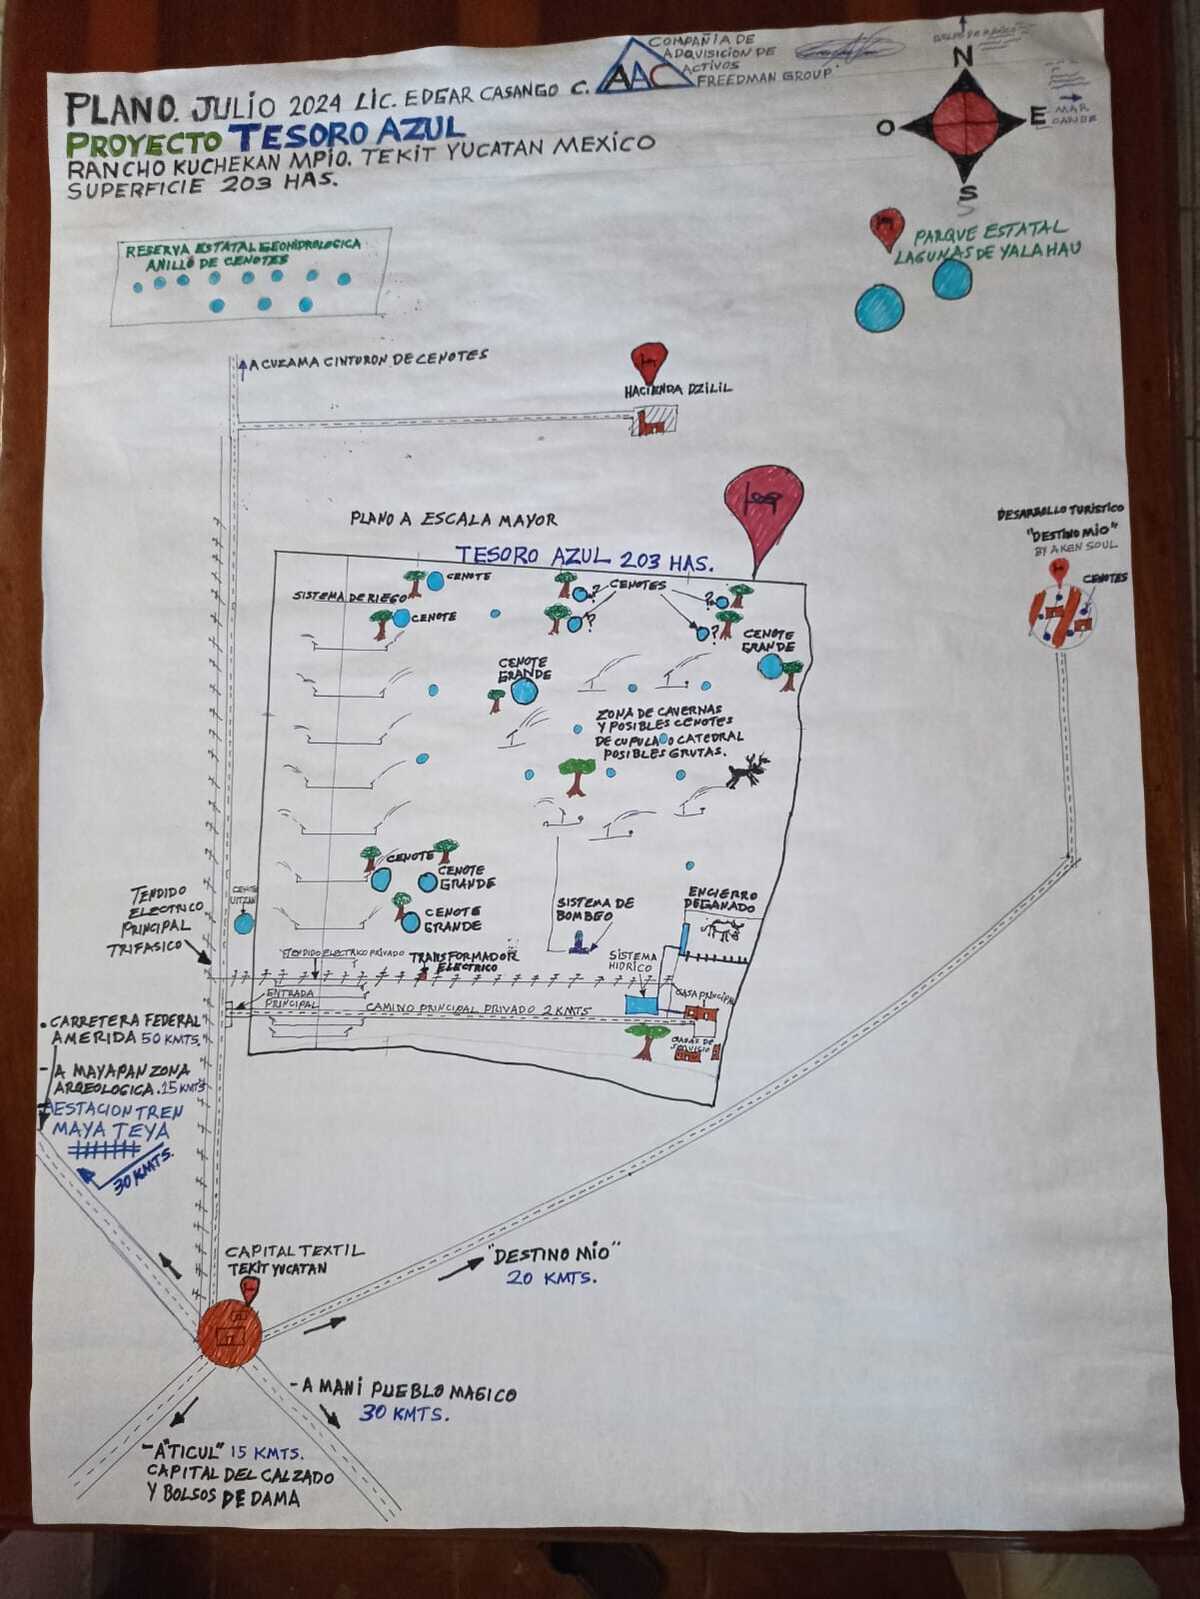 COMPAÑIA DE
ADQUISICION DE
ACTIVOS
FREEDMAN GROUP.
AAC
PLANO. JULIO 2024 LIC. EDGAR CASANGO C.
PROYECTO TESORO AZUL
RANCHO KUCHEKAN MPIO. TEKIT YUCATAN MEXICO
SUPERFICIE 203 HAS.
N
O
E
S
MAR
RESERVA ESTATAL GEOHIDROLOGICA
ANILLO DE CENOTES
PARQUE ESTATAL
LAGUNAS DE YALAHAU
A CUZAMA CINTURON DE CENOTES
HACIENDA DZILIL
PLANO A ESCALA MAYOR
TESORO AZUL 203 HAS.
DESARROLLO TURISTICO
"DESTINO MIO"
BY AKEN SOUL
CENOTES
CENOTE
SISTEMA DE RIEGO
CENOTE
?
?
CENOTES
?
?
CENOTE
GRANDE
CENOTE
GRANDE
ZONA DE CAVERNAS
Y POSIBLES CENOTES
DE CUPULA O CATEDRAL
POSIBLES GRUTAS.
CENOTE
CENOTE
GRANDE
CENOTE
GRANDE
TENDIDO
ELECTRICO
PRINCIPAL
TRIFASICO
SISTEMA DE
BOMBEO
ENCIERRO
DE GANADO
TENDIDO ELECTRICO PRIVADO
TRANSFORMADOR
ELECTRICO
SISTEMA
HIDRICO
ENTRADA
PRINCIPAL
CAMINO PRINCIPAL PRIVADO 2 KMTS
CASA PRINCIPAL
CASAS DE
SERVICIO
CARRETERA FEDERAL
A MERIDA 50 KMTS.
- A MAYAPAN ZONA
ARQEOLOGICA. 15 KMTS
A ESTACION TREN
MAYA TEYA
30 KMTS.
CAPITAL TEXTIL
TEKIT YUCATAN
"DESTINO MIO"
20 KMTS.
- A MANI PUEBLO MAGICO
30 KMTS.
- A "TICUL" 15 KMTS.
CAPITAL DEL CALZADO
Y BOLSOS DE DAMA